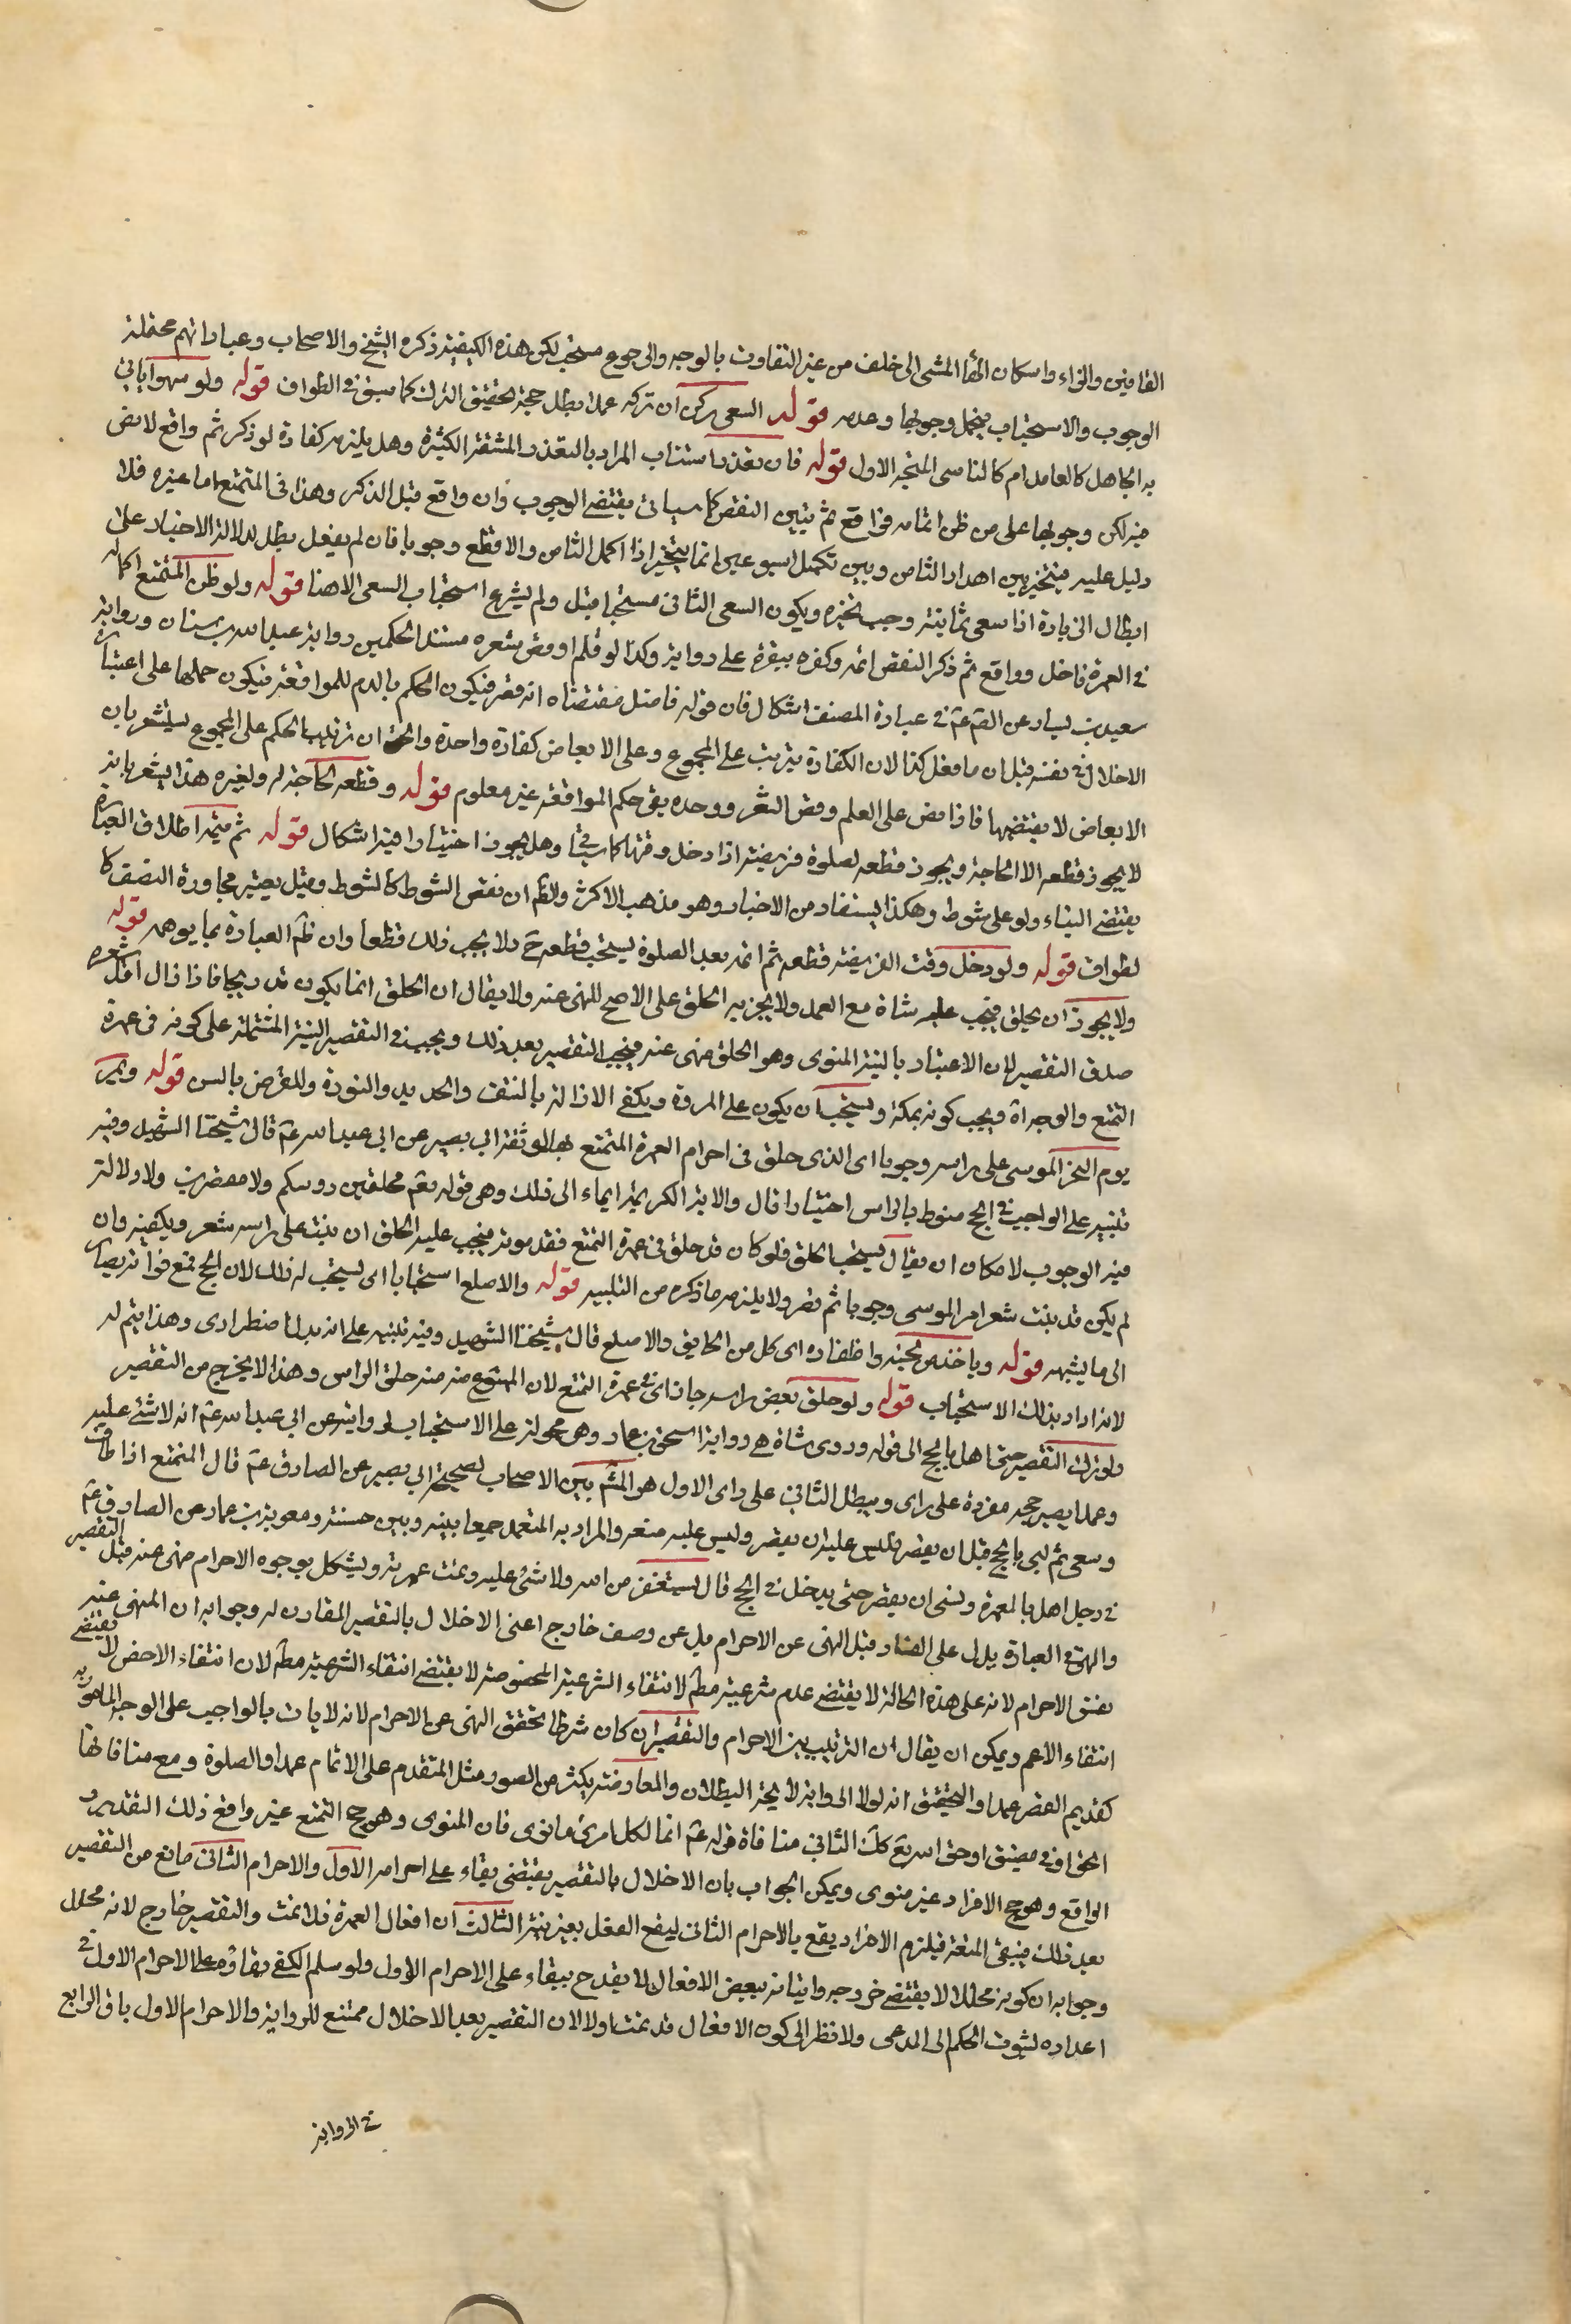 القافين والراء واسكان الهاء المشى الى خلف من غير التفاوت بالوجه والرجوع مستحب لكن هذه الكيفية ذكره الشيخ والاصحاب وعباراتهم محتملة
الوجوب والاستحباب فيحتمل وجوبها وعدمه قوله السعى ركن ان تركه عمدا بطل حجه لتحقيق الترك كما سبق فى الطواف قوله ولو سهوا ياتى
به الجاهل كالعامد ام كالناسى المتجه الاول قوله فان تعذر استناب المراد بالتعذر المشقة الكثيرة وهل يلزمه كفارة لو ذكر ثم واقع لا نص
فيه لكن وجوبها على من ظن اتمامه فواقع ثم تبين النقص كما سياتى يقتضى الوجوب وان واقع قبل الذكر وهذا فى المتمتع اما غيره فلا
دليل عليه فيتخير بين اهدار الثامن وبين تكميل اسبوعين انما يتخير اذا اكمل الثامن والا قطع وجوبا فان لم يفعل بطل لدلالة الاخبار على
ابطال الزيادة اذا سعى ثمانية وجب تخيره ويكون السعى الثانى مستحبا قيل ولم يشرع استحباب السعى الا هنا قوله ولو ظن المتمتع اكماله
فى العمرة فاحل وواقع ثم ذكر النقص اتمه وكفر ببقرة على رواية وكذا لو قلم او قص شعره مستند الحكمين رواية عبد الله بن سنان ورواية
سعيد بن يسار عن الصم عم فى عبارة المصنف اشكال فان قوله فاحل مقتضاه انه قصر فيكون الحكم بالدم للمواقعة فيكون حملها على اعتبار
الاخلال فى نفسه قبل ان ما فعل كذا لان الكفارة يترتب على المجموع وعلى الابعاض كفارة واحدة والحق ان ترتيب الحكم على المجموع ليشعر بان
الابعاض لا يقتضيها فاذا مض على العلم وقص الشعر ووحده بقى حكم المواقعة غير معلوم قوله وقطعه لحاجة له ولغيره هذا يشعر بانه
لا يجوز قطعه الا لحاجة ويجوز قطعه لصلوة فريضة اذا دخل وقتها كما سياتى وهل يجوز اختيارا فيه اشكال قوله ثم يتمه اطلاق العبارة
يقتضى البناء ولو على شوط وهكذا يستفاد من الاخبار وهو مذهب الاكثر والظم ان نقص الشوط كالشوط وقيل يعتبر مجاوزة النصف كا
لطواف قوله ولو دخل وقت الفريضة قطعه ثم اتمه بعد الصلوة يستحب قطعه ح ولا يجب ذلك قطعا وان ظم العبارة بما يوهمه قوله
ولا يجوز ان يحلق فيجب عليه شاة مع العمد ولا يجزيه الحلق على الاصح للنهى عنه ولا يقال ان الحلق انما يكون تدريجا فاذا زال اقل شعره
صدق التقصير لان الاعتبار بالنية المنوى وهو الحلق منهى عنه فيجب التقصير بعد ذلك ويجب فى التقصير النية المشتملة على كونه فى عمرة
التمتع والوجه اه ويجب كونه بمكة ويستحب ان يكون على المروة ويكفى الازالة بالنتف والحديد والنورة وللقرض بالسن قوله ويمر
يوم النحر الموسى على راسه وجوبا اى الذى حلق فى احرام العمرة المتمتع بها لوثقة ابى بصير عن ابى عبد الله عم قال شيخنا الشهيد وفيه
تنبيه على الواجب فى الحج منوط بالراس اختيارا قال والاية الكريمة ايماء الى ذلك وهى قوله تعم محلقين روسكم ولا مقصرين ولا دلالة
فيه الوجوب لامكان ان يقال يستحب الحلق فلو كان قد حلق فى عمرة التمتع فقد مونه فيجب عليه الحلق ان ينبت على راسه شعر ويكفيه وان
لم يكن قد نبت شعر امر الموسى وجوبا ثم قصر ولا يلزمه ما ذكره من التلبيه قوله والاصلع استحبابا اى يستحب له ذلك لان الحج تمتع فواته يصار
الى ما يشبهه قوله وياخذ من لحيته واظفاره اى كل من الحالق والاصلع قال شيخنا الشهيد وفيه تنبيه على انه بدل اضطرارى وهذا يتم له
لانه اراد بذلك الاستحباب قوله ولو حلق بعض راسه جاز اى فى عمرة التمتع لان الممنوع منه حلق الراس وهذا لا يخرج من التقصير
ولو ترك التقصير حتى اهل بالحج الى قوله وروى شاة هى رواية اسحق بن عمار وهى محمولة على الاستحباب لرواية عن ابى عبد الله عم انه لا شئ عليه
وعمدا يصير حجه مفردة على راى ويبطل الثانى على راى الاول هو المشم بين الاصحاب لصحيحة ابى بصير عن الصادق عم قال المتمتع اذا طاف
وسعى ثم لبى بالحج قبل ان يقصر فليس عليه ان يقصر وليس عليه متعه والمراد به المتعمد جمعا بينه وبين حسنة ومعوية بن عمار عن الصادق عم
فى رجل اهل بالعمرة ونسى ان يقصر حتى يدخل فى الحج قال يستغفر من الله ولا شئ عليه وتمت عمرته ويشكل بوجوه الاحرام منهى عنه قبل التقصير
والنهى فى العبارة يدل على الفساد قيل النهى عن الاحرام بل عن وصف خارج اعنى الاخلال بالتقصير المقارن له وجوابه ان المنهى عنه
نفس الاحرام لانه على هذه الحالة لا يقتضى عدم شرعيته مطم لانتفاء الشرعية المخصوصة لا يقتضى انتفاء الشرعية مطم لان انتفاء الاخص لا يقتضى
انتفاء الاعم ويمكن ان يقال ان الترتيب بين الاحرام والتقصير ان كان شرطا تحقق النهى عن الاحرام لانه لا يات بالواجب على الوجه المامور به
كتقديم العصر عمدا والتحقيق انه لولا الرواية لاتجه البطلان والمعارضة بكثير من الصور مثل المتقدم على الاتمام عمدا والصلوة ومع منافاتها
الحق او فى مضيق اوحق اسرع كك الثانى منافاة قوله عم انما لكل امرئ ما نوى فان المنوى وهو حج التمتع غير واقع ذلك التقدير و
الواقع وهو حج الافراد غير منوى ويمكن الجواب بان الاخلال بالتقصير يقتضى بقاء على احرامه الاول والاحرام الثانى مانع من التقصير
بعد ذلك فينبغى المتعة فيلزم الافراد يقع بالاحرام الثانى ليفح الفعل بغير نية الثالث ان افعال العمرة قد تمت والتقصير خارج لانه محلل
وجوابه ان كونه محللا لا يقتضى خروجه واتيانه ببعض الافعال لا يقدح ببقاء على الاحرام الاول ولو سلم الكفى بقاؤه على الاحرام الاول فى
اعداده لثبوت الحكم الى المدعى ولا نظر الى كون الافعال قد تمت اولا لان التقصير بعد الاخلال ممتنع للرواية والاحرام الاول باق الرابع
فى الرواية